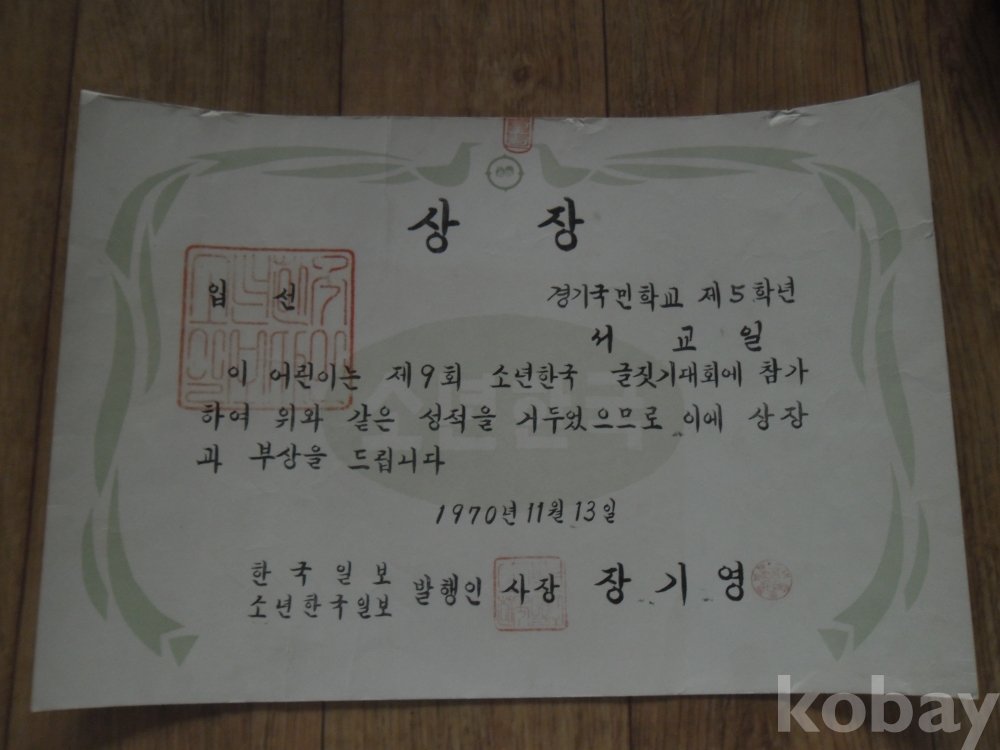 상 장
입 선
경기국민학교 제5학년
서 교 일
이 어린이는 제9회 소년한국 글짓기대회에 참가
하여 위와 같은 성적을 거두었으므로 이에 상장
과 부상을 드립니다
1970년 11월 13일
한국일보
소년한국일보
발행인 사장 장기영
소년한국
kobay